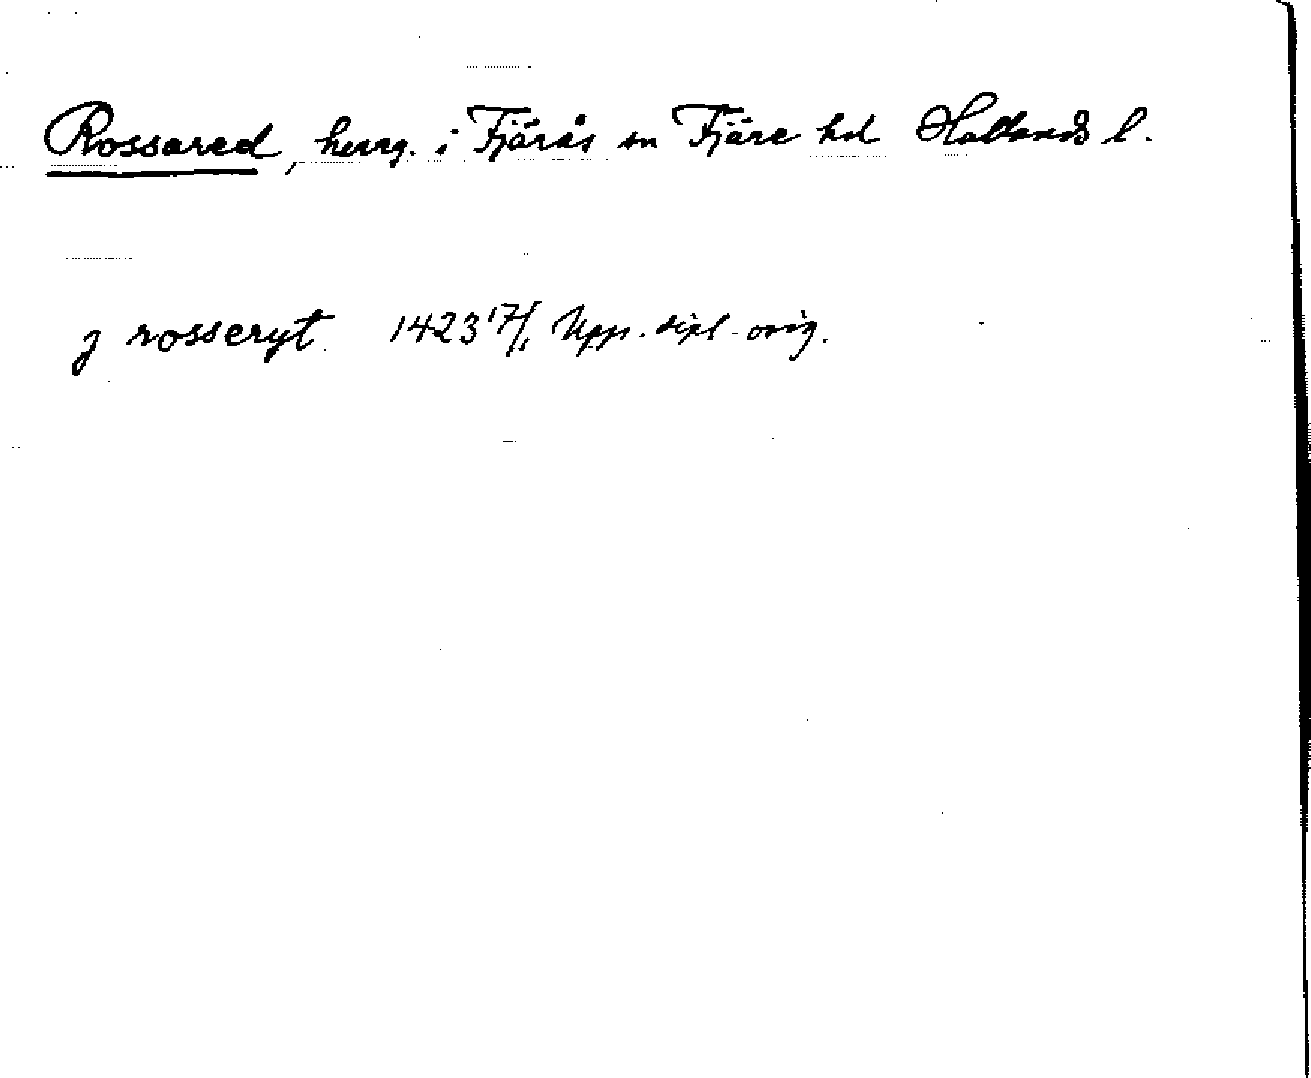 Rossared, herrg. i Fjärås sn Fjäre hd Hallands l.
j rosseryt 1423 17/1 Upps. dipl. orig.